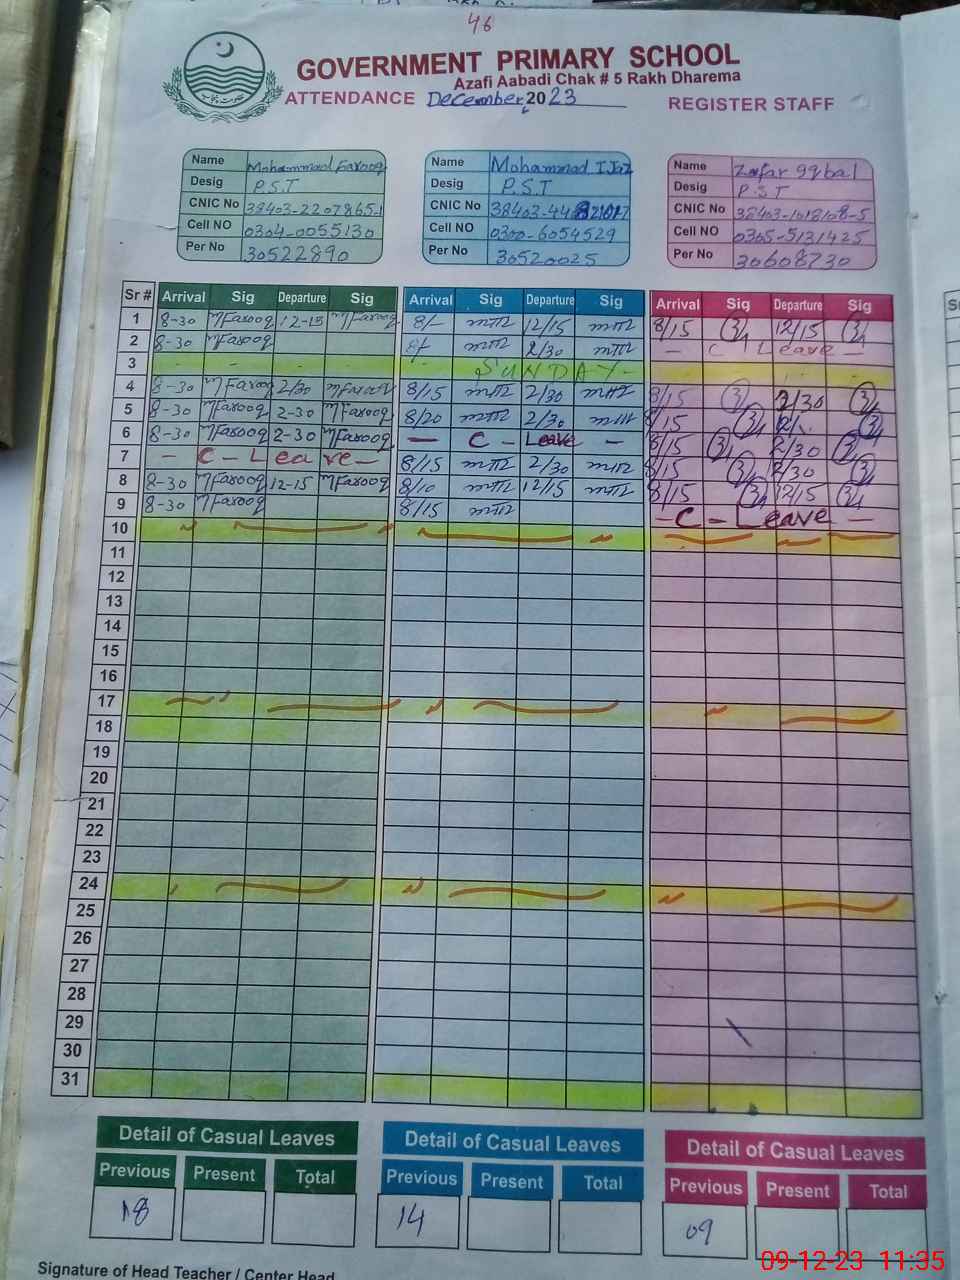 46
GOVERNMENT PRIMARY SCHOOL
Azafi Aabadi Chak # 5 Rakh Dharema
ATTENDANCE December 2023 REGISTER STAFF
Name Mohammad Farooq Name Mohammad IJaz Name Zafar Iqbal
Desig P.S.T Desig P.S.T Desig P.S.T
CNIC No 38403-2207865-1 CNIC No 38403-44 CNIC No 38403-1018108-5
Cell NO 0304-0055130 Cell NO 0300-6054529 Cell NO 0305-5131425
Per No 30522890 Per No 30520025 Per No 30608730
Sr # Arrival Sig Departure Sig Arrival Sig Departure Sig Arrival Sig Departure Sig
1 8-30 MFarooq 12-15 MFarooq 8/- 12/15 8/15 12/15
2 8-30 MFarooq 2/30 - C - Leave -
3 SUNDAY-
4 8-30 MFarooq 2/30 MFarooq 8/15 2/30 8/15 2/30
5 8-30 MFarooq 2-30 MFarooq 8/20 2/30 8/15
6 8-30 MFarooq 2-30 MFarooq - C - Leave - 8/15 2/30
7 - C - Leave - 8/15 2/30 8/15 2/30
8 8-30 MFarooq 12-15 MFarooq 8/10 12/15 8/15 12/15
9 8-30 MFarooq 8/15 - C - Leave -
10
11
12
13
14
15
16
17
18
19
20
21
22
23
24
25
26
27
28
29
30
31
Detail of Casual Leaves Detail of Casual Leaves Detail of Casual Leaves
Previous Present Total Previous Present Total Previous Present Total
18 14 09
Signature of Head Teacher / Center Head
09-12-23 11:35